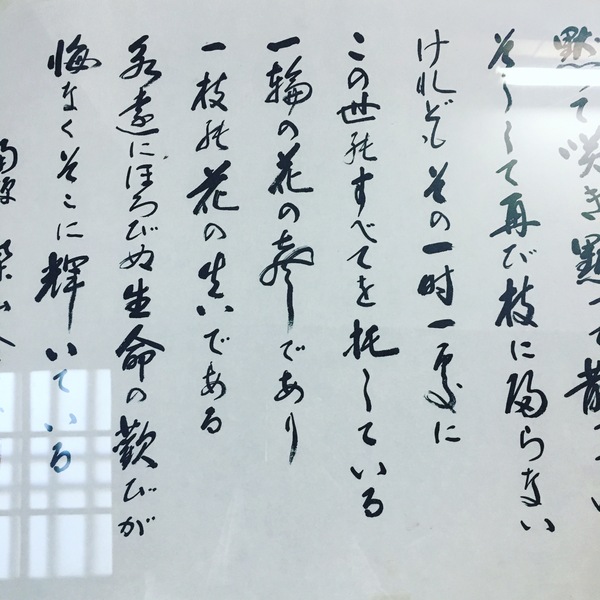 黙って咲き黙って散ってい
そうして再び枝に帰らない
けれどもその一時一処に
この世のすべてを托している
一輪の花の声であり
一枝の花の真である
永遠にほろびぬ生命の歓びが
悔なくそこに輝いている